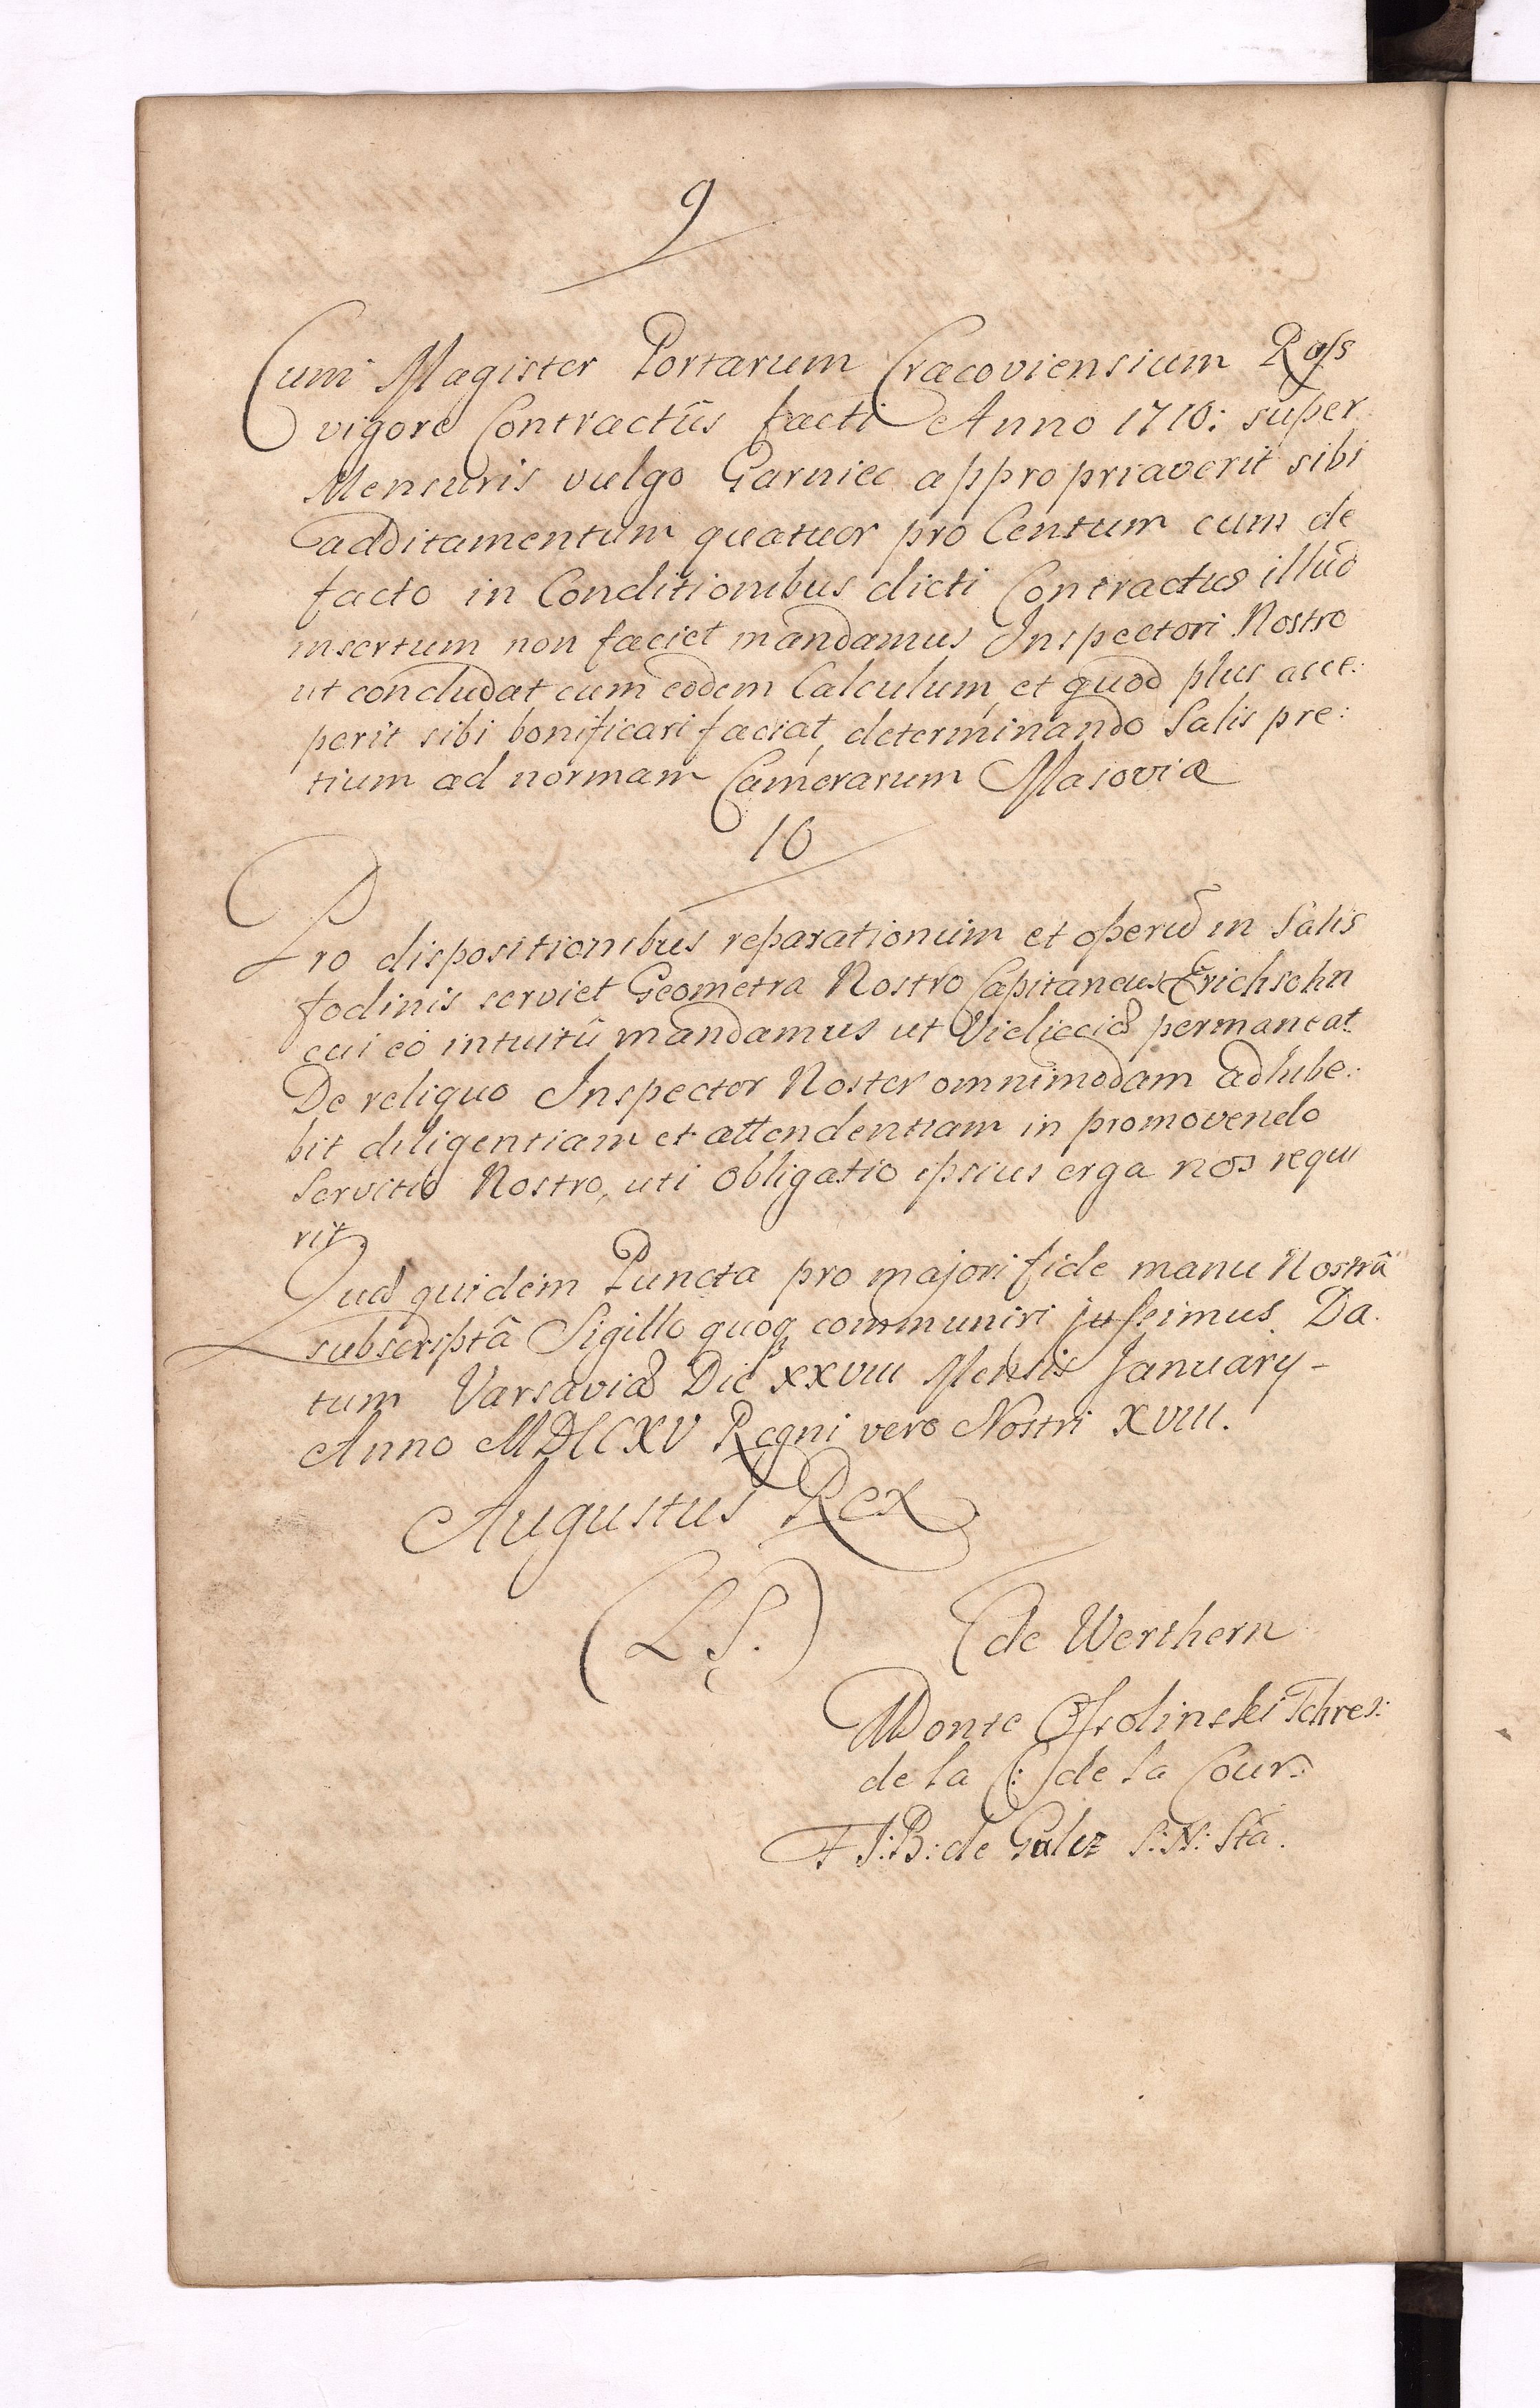 9
Cum Magister Portarum Cracoviensium Ross
vigore Contractûs facti Anno 1710: super
Mensuris vulgo Garniec appropriaverit sibi
additamentum quatuor pro Centum cum de
facto in Conditionibus dicti Contractus illud
insertum non faciet mandamus Inspectori Nostro
ut concludat cum eodem Calculum, et quod plus acce:
perit sibi bonificari faciat, determinando Salis pre:
tium ad normam Camerarum Masoviæ
10
Pro dispositionibus reparationum et operũ in Salis
fodinis serviet Geometra Nostro Capitaneus Erichsohn
cui eo intuitû mandamus ut Vieliciæ permaneat.
De reliquo Inspector Noster omnimodam adhibe:
bit diligentiam et attendentiam in promovendo
Servitio Nostro, uti obligatio ipsius erga nos requi
rit.
Quæ quidem Puncta pro majori fide manu Nostrâ
subscriptâ Sigillo quoq communiri jussimus. Da.
tum Varsaviæ Die XXVIII Mensis January -
Anno MDCCXV Regni vero Nostri XVIII.
Augustus Rex
(L.S.)
de Werthern
Comte Ossolinski Tchres:
de la C: de la Cour:
F J: B: de Galez S: N: Sta.